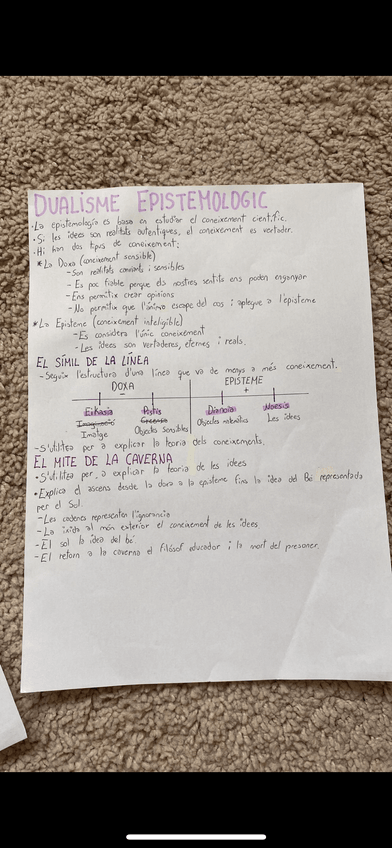 DUALISME EPISTEMOLOGIC
·La epistemologia es basa en estudiar el coneixement científic.
·Si les idees son realitats autentiques, el coneixement es vertader.
·Hi han dos tipus de coneixement:
*La Doxa (coneixement sensible)
-Son realitats canviants i sensibles
-Es poc fiable perque els nostres sentits ens poden enganyar
-Ens permitix crear opinions
-No permitix que l'ànima escape del cos i aplegue a l'episteme
*La Episteme (coneixement inteligible)
-Es considera l'únic coneixement
-Les idees son vertaderes, eternes i reals.
EL SÍMIL DE LA LÍNEA
-Seguix l'estructura d'una línea que va de menys a més coneixement.
DOXA EPISTEME
- +
Eikasia Pistis Dianoia Noesis
Imaginació Creensa Objectes matemàtics Les idees
Imatge Objectes sensibles
-S'utilitza per a explicar la teoria dels coneixements.
EL MITE DE LA CAVERNA
·S'utilitza per a explicar la teoria de les idees
·Explica el ascens desde la doxa a la episteme fins la idea del Bé representada
per el Sol.
-Les cadenes representen l'ignorancia
-La ixida al món exterior el coneixement de les idees
-El sol la idea del bé.
-El retorn a la caverna el filósof educador i la mort del presoner.